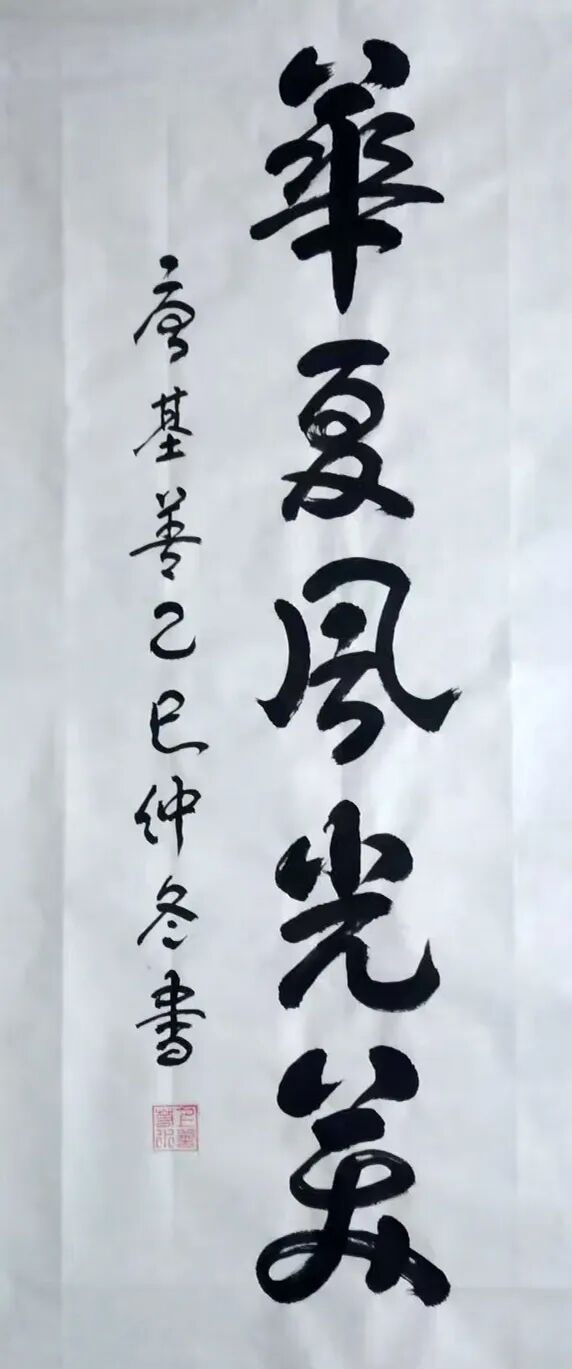 華夏風光美
唐基善乙巳仲冬書